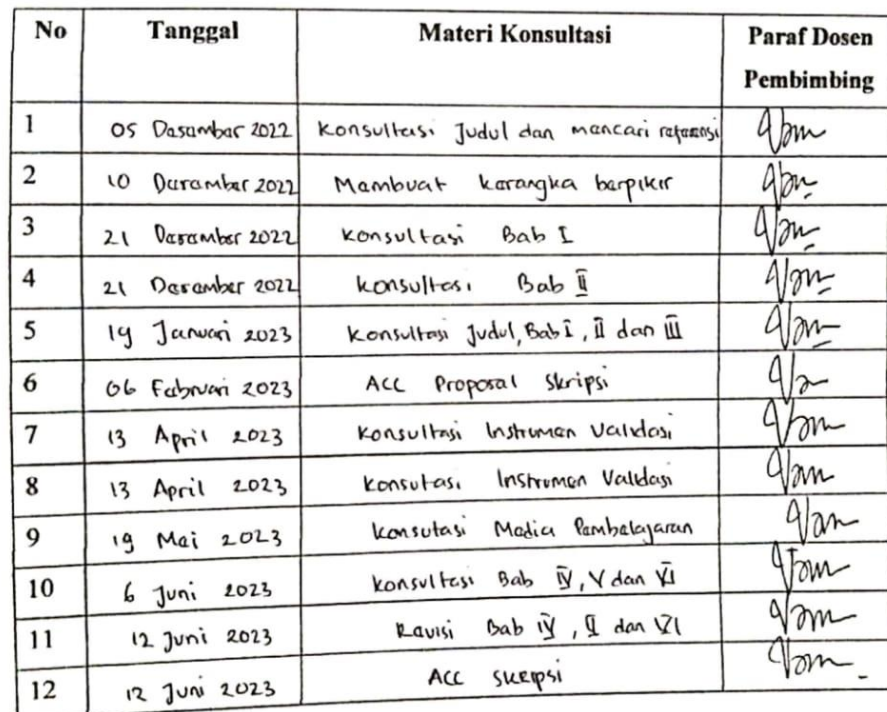 No Tanggal Materi Konsultasi Paraf Dosen
Pembimbing
1 05 Desember 2022 Konsultasi Judul dan mencari referensi
2 10 Desember 2022 Membuat kerangka berpikir
3 21 Desember 2022 Konsultasi Bab I
4 21 Desember 2022 Konsultasi Bab II
5 19 Januari 2023 Konsultasi Judul, Bab I, II dan III
6 06 Februari 2023 ACC Proposal Skripsi
7 13 April 2023 Konsultasi Instrumen Validasi
8 13 April 2023 Konsutasi Instrumen Validasi
9 19 Mei 2023 Konsutasi Media Pembelajaran
10 6 Juni 2023 Konsultasi Bab IV, V dan VI
11 12 Juni 2023 Revisi Bab IV, V dan VI
12 12 Juni 2023 ACC Skripsi